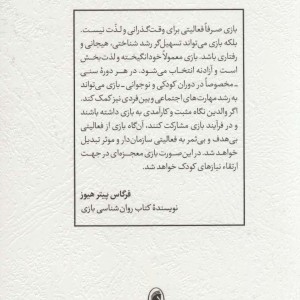 بازی صرفاً فعالیتی برای وقت‌گذرانی و لذّت نیست.
بلکه بازی می‌تواند تسهیل‌گر رشد شناختی، هیجانی و
رفتاری باشد. بازی معمولاً خودانگیخته و لذت‌بخش
است و آزادانه انتخاب می‌شود. در هر دورهٔ سنی
ـ مخصوصاً در دوران کودکی و نوجوانی ـ بازی می‌تواند
به رشد مهارت‌های اجتماعی و بین‌فردی نیز کمک کند.
اگر والدین نگاه مثبت و کارآمدی به بازی داشته باشند
و در فرآیند بازی مشارکت کنند، آن‌گاه بازی از فعالیتی
بی‌هدف و بی‌ثمر به فعالیتی سازمان‌دار و موثر تبدیل
خواهد شد. در این صورت بازی معجزه‌ای در جهت
ارتقاء نیازهای کودک خواهد شد.
فرگاس پیتر هیوز
نویسندهٔ کتاب روان‌شناسی بازی